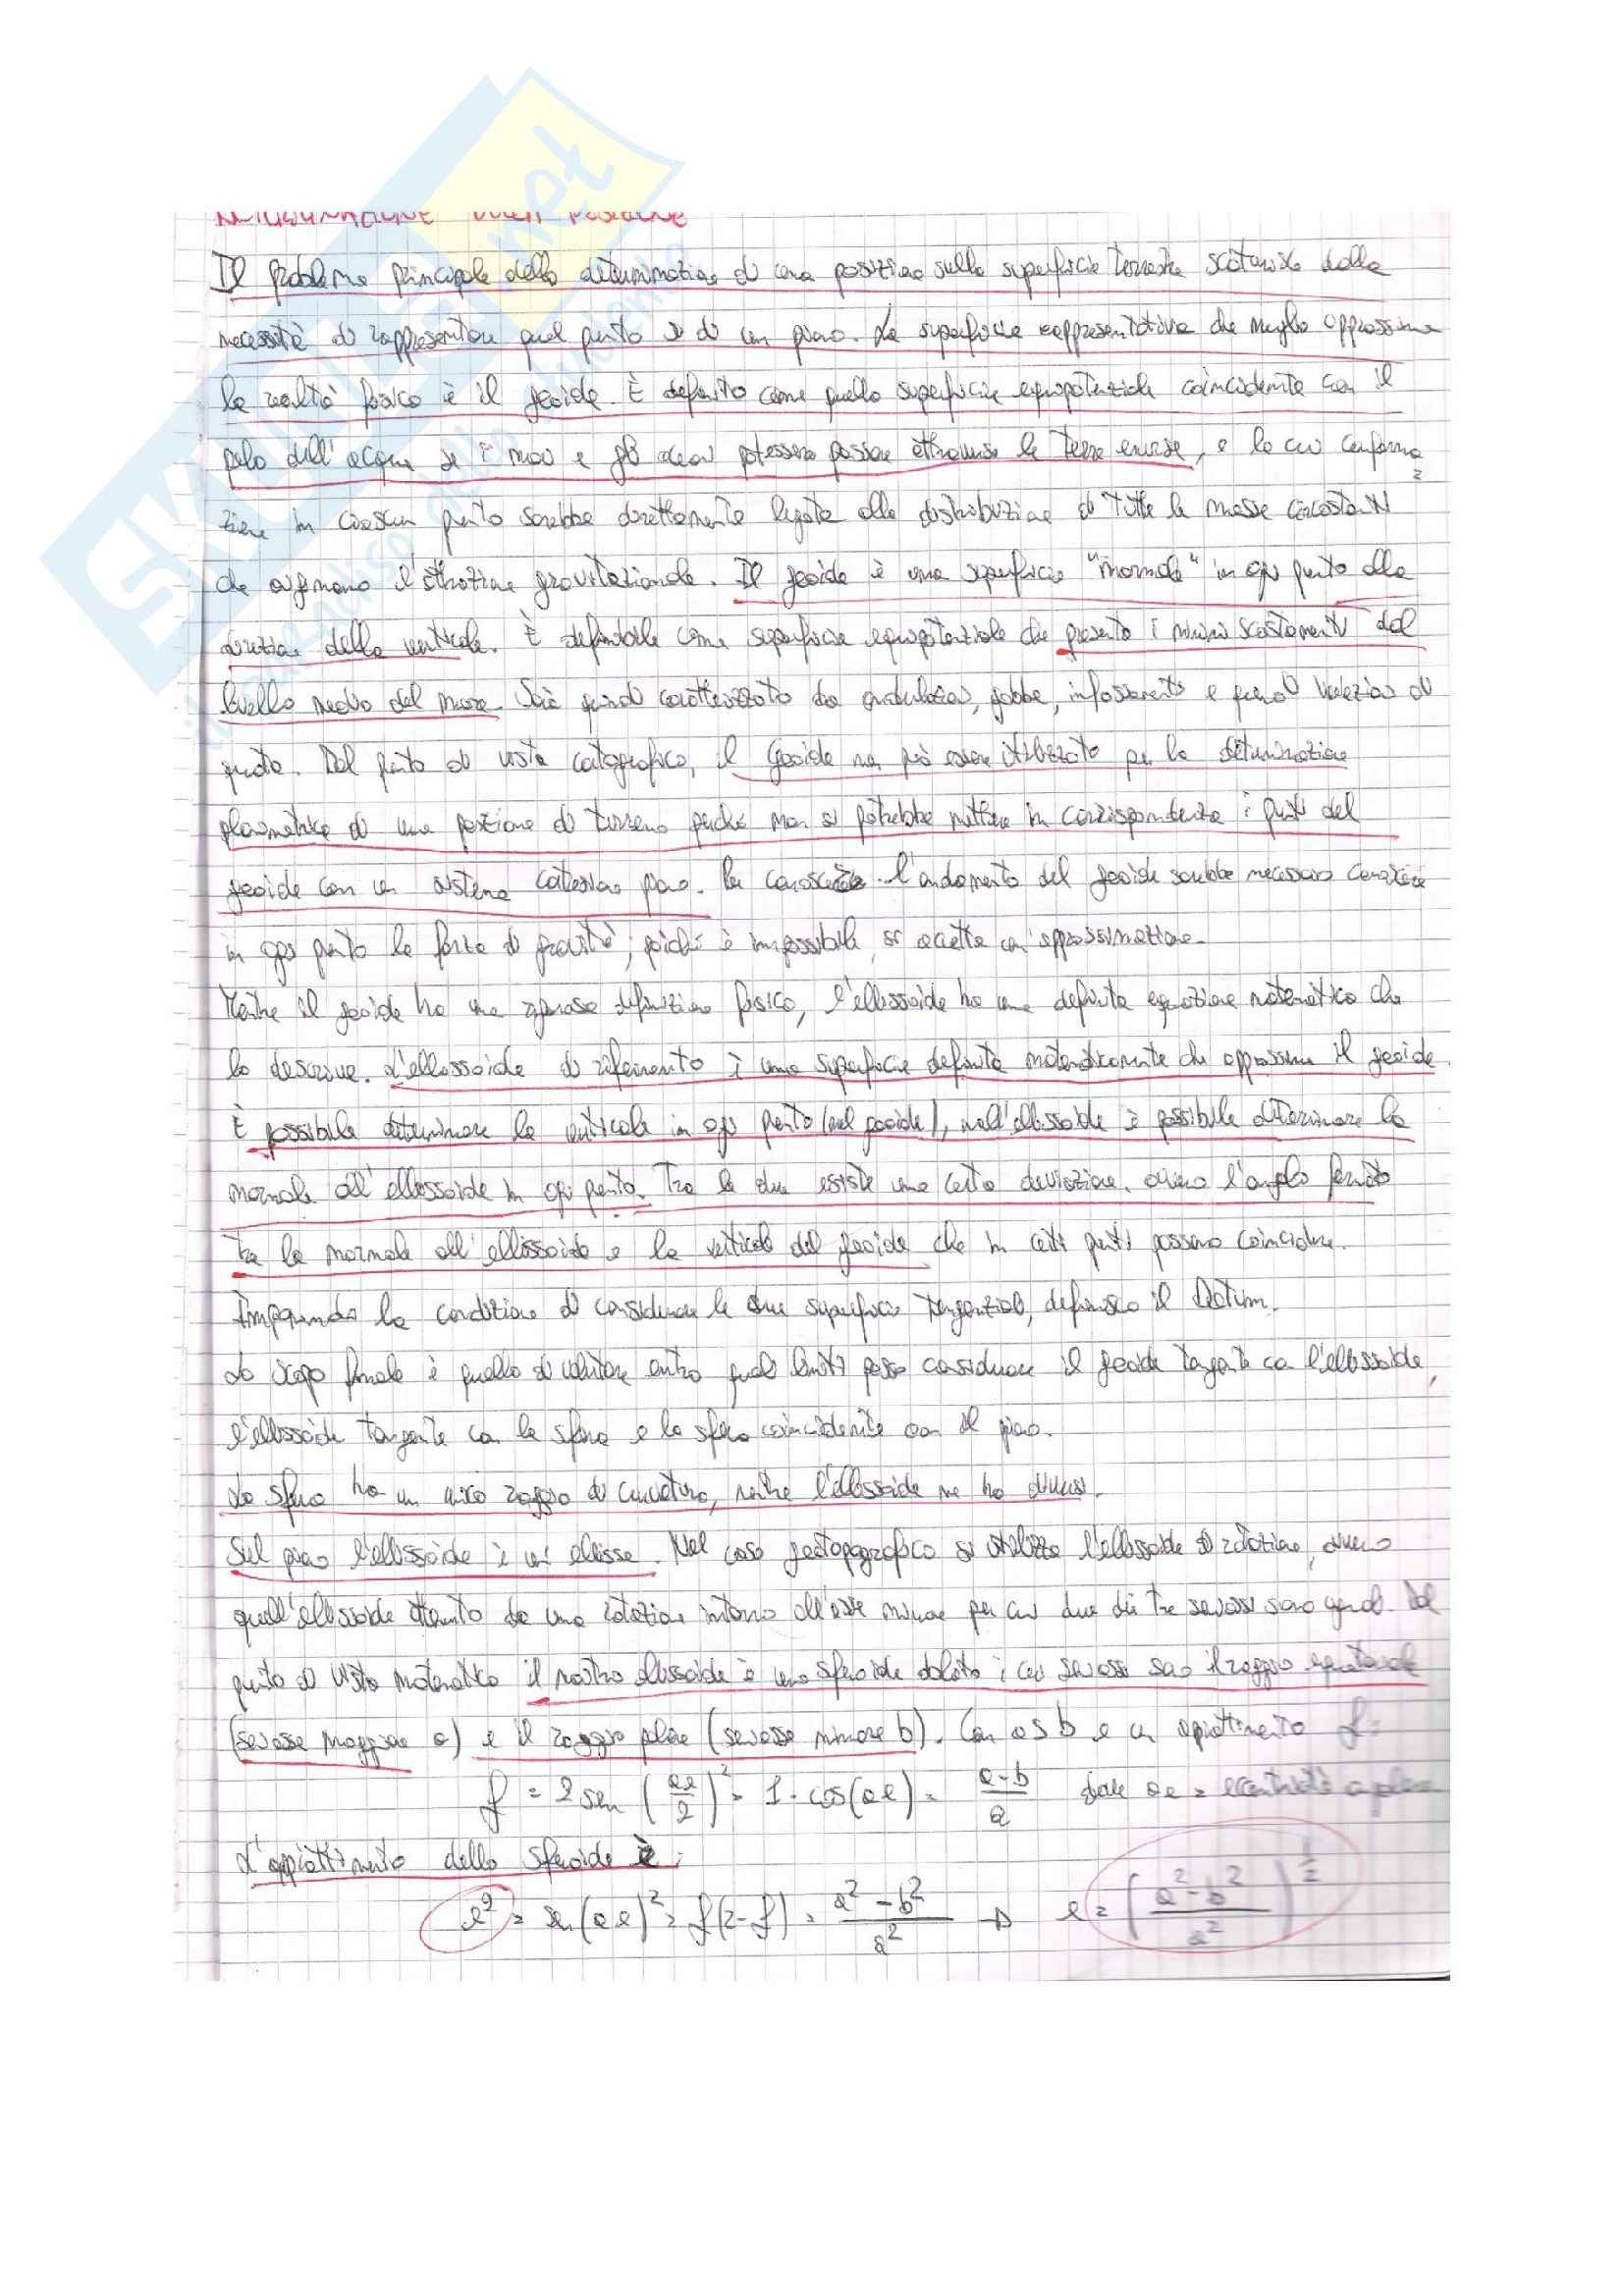 SKUOLA.net
DETERMINAZIONE DELLA POSIZIONE
Il problema principale della determinazione di una posizione sulla superficie terrestre scaturisce dalla
necessità di rappresentare quel punto su di un piano. La superficie rappresentativa che meglio approssima
la realtà fisica è il geoide. È definito come quella superficie equipotenziale coincidente con il
pelo dell'acqua se i mari e gli oceani potessero passare attraverso le terre emerse, e la cui conforma
zione in ciascun punto sarebbe direttamente legata alla distribuzione di tutte le masse circostanti
che influenzano l'attrazione gravitazionale. Il geoide è una superficie "normale" in ogni punto alla
direzione della verticale. È definibile come superficie equipotenziale che presenta i minimi scostamenti dal
livello medio del mare. Sarà quindi caratterizzato da ondulazioni, gobbe, infossamenti e quindi variazioni di
quota. Dal punto di vista cartografico, il geoide non può essere utilizzato per la determinazione
planimetrica di una posizione di terreno perché non si potrebbe mettere in corrispondenza i punti del
geoide con un sistema cartesiano piano. Per conoscere l'andamento del geoide sarebbe necessario conoscere
in ogni punto la forza di gravità; poiché è impossibile, si accetta un'approssimazione.
Mentre il geoide ha una rigorosa definizione fisica, l'ellissoide ha una definita equazione matematica che
lo descrive. L'ellissoide di riferimento è una superficie definita matematicamente che approssima il geoide.
È possibile determinare la verticale in ogni punto (nel geoide), nell'ellissoide è possibile determinare la
normale all'ellissoide in ogni punto. Tra le due esiste una certa deviazione, ovvero l'angolo formato
tra la normale all'ellissoide e la verticale del geoide che in certi punti possono coincidere.
Imponendo la condizione di considerare le due superfici tangenziali, definisco il Datum.
Lo scopo finale è quello di valutare entro quali limiti posso considerare il geoide tangente con l'ellissoide,
l'ellissoide tangente con la sfera e la sfera coincidente con il piano.
La sfera ha un unico raggio di curvatura, mentre l'ellissoide ne ha diversi.
Sul piano l'ellissoide è un'ellisse. Nel caso geotopografico si utilizza l'ellissoide di rotazione, ovvero
quell'ellissoide ottenuto da una rotazione intorno all'asse minore per cui due dei tre semiassi sono uguali. Dal
punto di vista matematico il nostro ellissoide è uno sferoide oblato i cui semiassi sono il raggio equatoriale
(semiasse maggiore a) e il raggio polare (semiasse minore b). Con a≤b e un appiattimento f:
f = 2 sen (ae/2)² = 1 - cos(ae) = a-b/a dove ae = eccentricità angolare
L'appiattimento dello sferoide è:
e² = sen(ae)² = f(2-f) = a²-b²/a² → e = (a²-b²/a²)^½